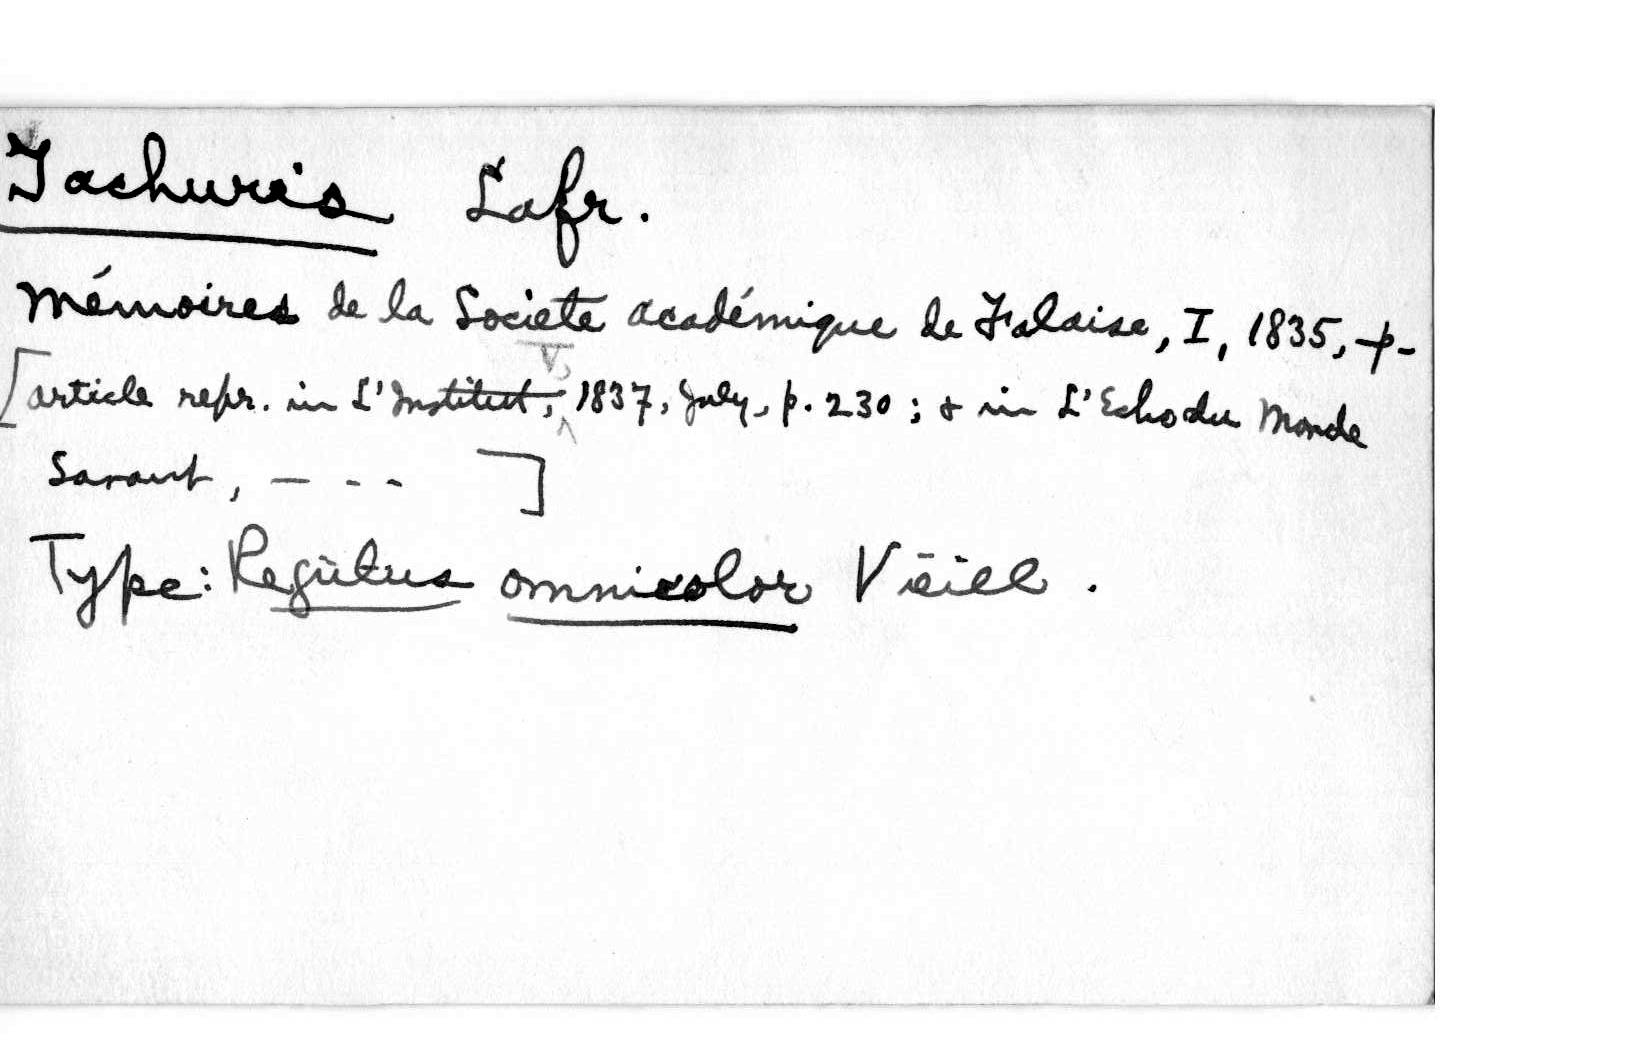 Tachuris Lafr.
Mémoires de la Societe académique de Falaise, I, 1835, p-
V,
[article repr. in L'Institut, 1837, July, p. 230; & in L'Echo du Monde
Savant, — - - ]
Type: Regulus omnicolor Vieill.